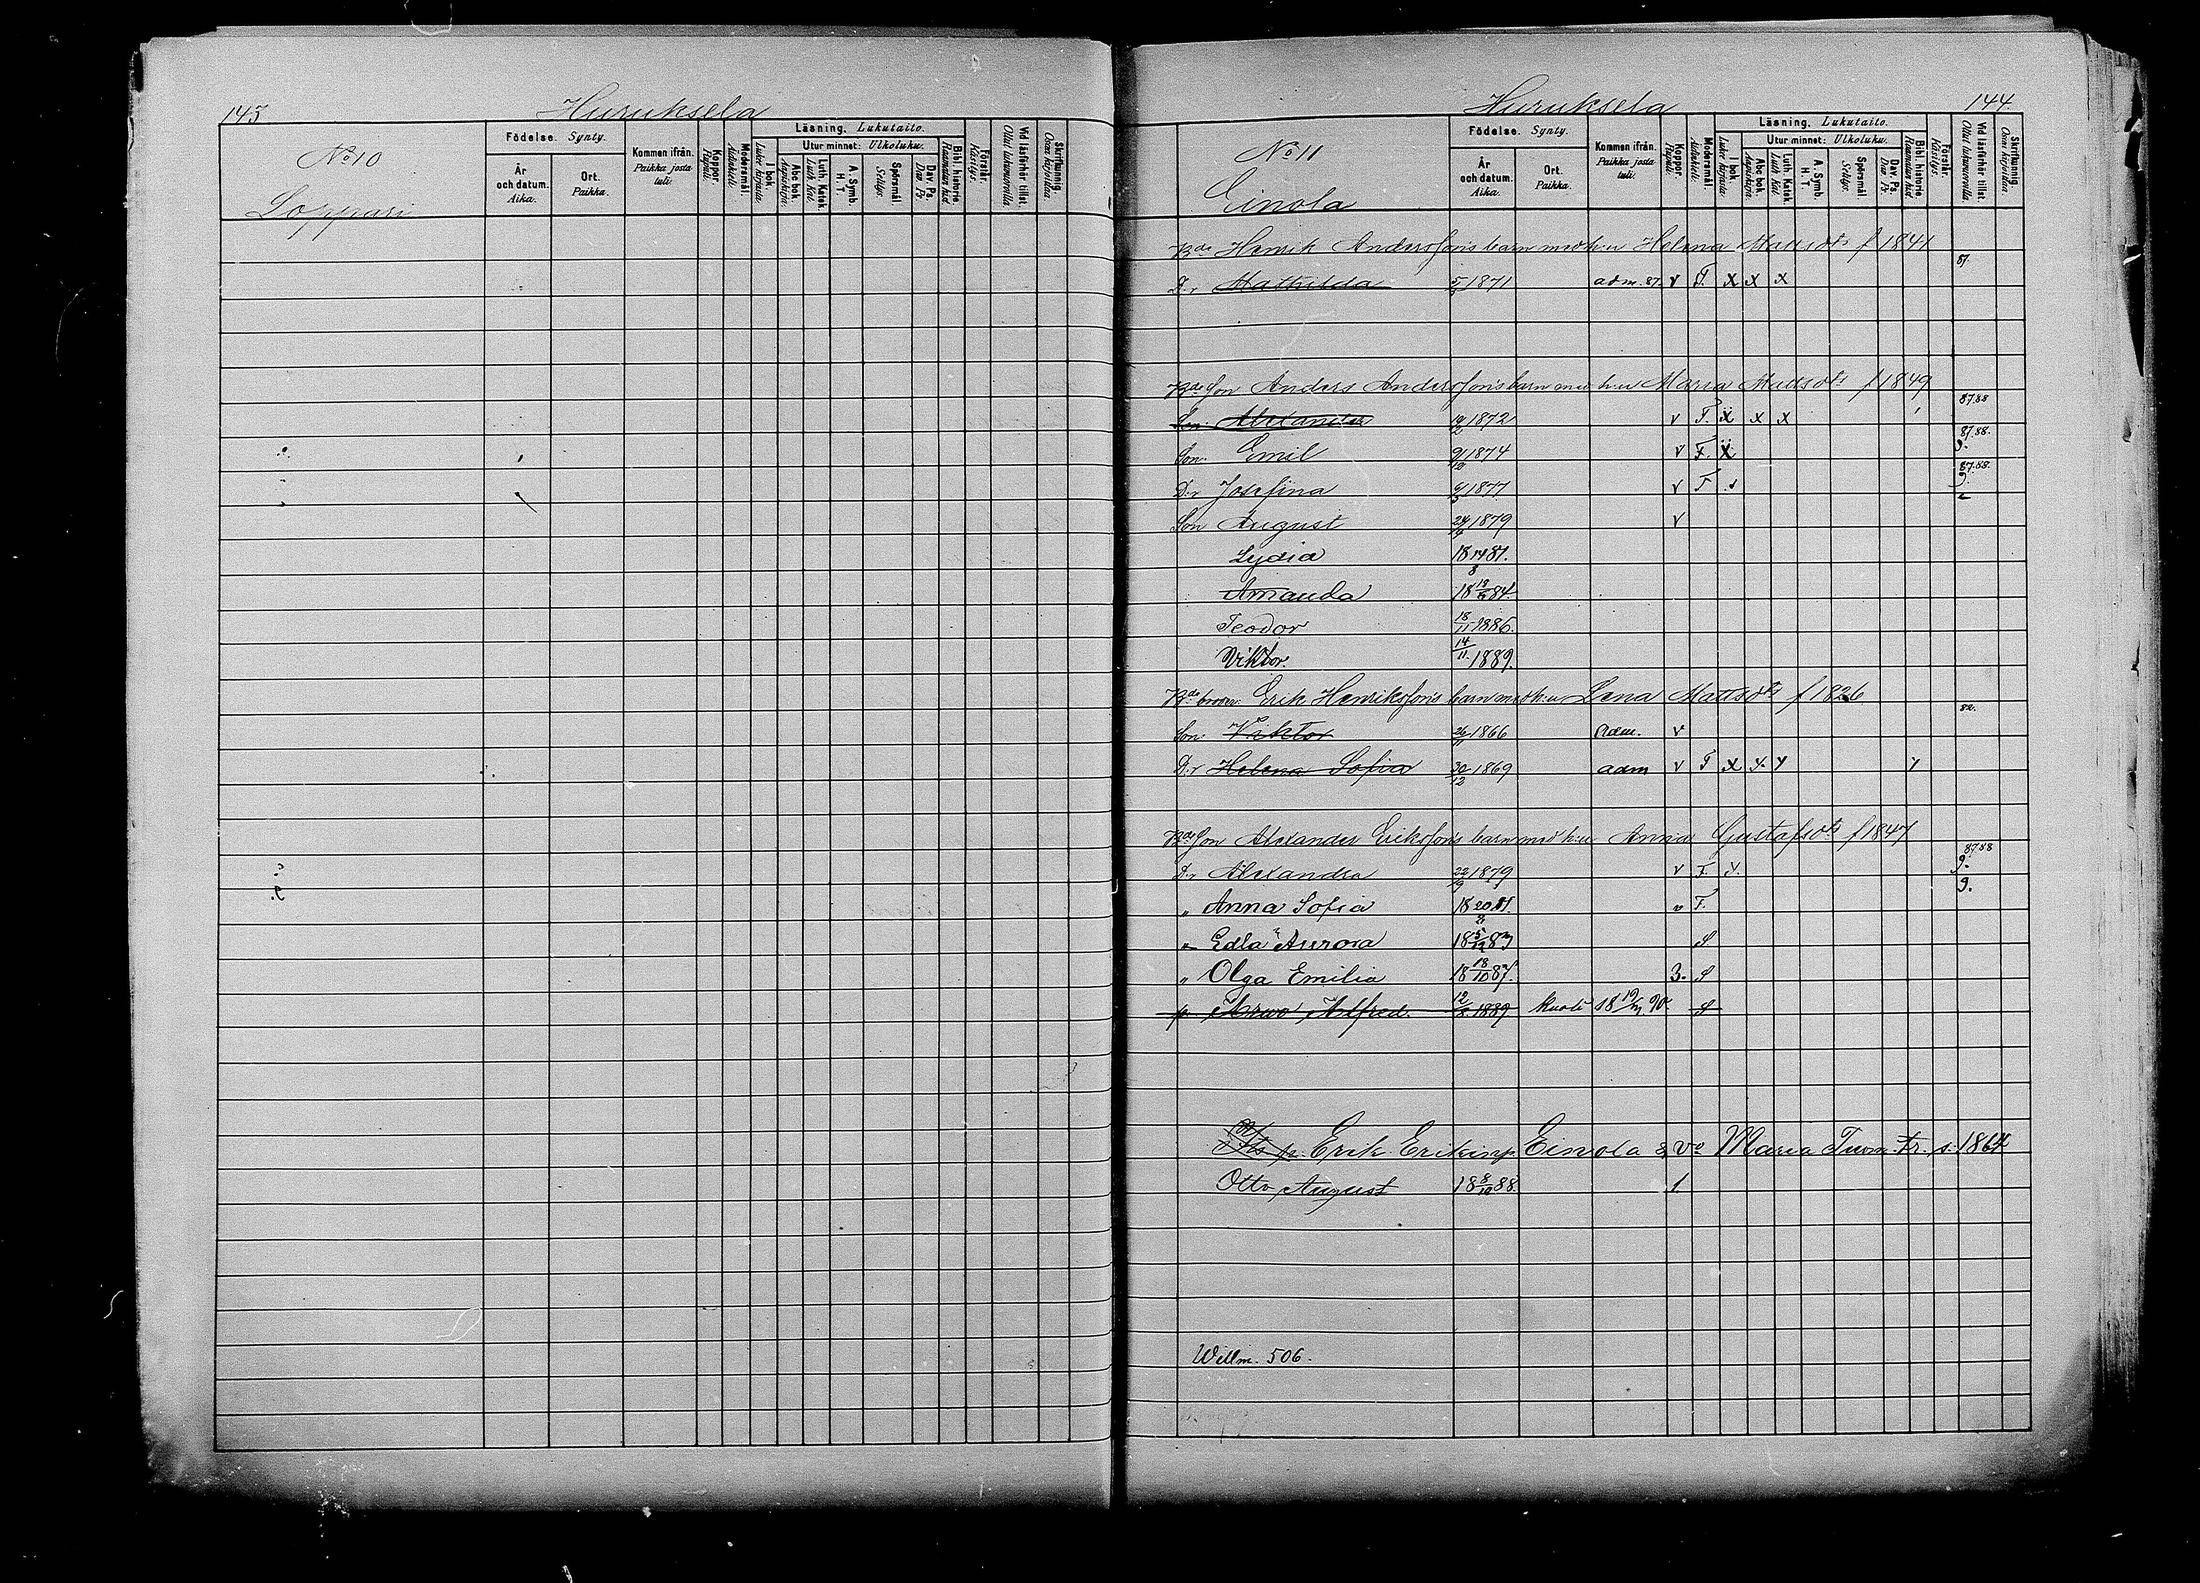 143.
Huruksela
No 10
Loppari
Födelse. Synty.
År och datum. Aika.
Ort. Paikka.
Kommen ifrån. Paikka josta tuli.
Koppor. Rupuli.
Modersmål. Äidinkieli.
Läsning. Lukutaito.
I bok. Lukee kirjasta.
Utur minnet: Ulkoluku.
Abc bok. Aapiskirja.
Luth. Katek. Luth. Kat.
A. Symb. H. T.
Spörsmål. Selitys.
Dav. Ps. Daw. Ps.
Bibl. historie. Raamatun hist.
Förstår. Käsitys.
Vid läsförhör tillst. Ollut lukuluvuilla.
Skriftkunnig. Osaa kirjoittaa.
Huruksela
144.
No 11
Einola
Födelse. Synty.
År och datum. Aika.
Ort. Paikka.
Kommen ifrån. Paikka josta tuli.
Koppor. Rupuli.
Modersmål. Äidinkieli.
Läsning. Lukutaito.
I bok. Lukee kirjasta.
Utur minnet: Ulkoluku.
Abc bok. Aapiskirja.
Luth. Katek. Luth. Kat.
A. Symb. H. T.
Spörsmål. Selitys.
Dav. Ps. Daw. Ps.
Bibl. historie. Raamatun hist.
Förstår. Käsitys.
Skriftkunnig. Osaa kirjoittaa.
Bde Henrik Anderssons barn med h:u Helena Mattsdtr f 1841
D:r Mathilda 1871 adm. 87. v F. x x x 87.
Bde Son Anders Anderssons barn med h:u Maria Mattsdtr f 1849
Son Alexander 1872 v F. x x x 87.88
Son Emil 9/12 1874 v F. x 87.88.
D:r Josefina 1877 v F 87.88.
Son August 1879 v
Lydia 18 81.
Amanda 18 84.
Teodor 18/11 1886.
Viktor. 14/11. 1889.
Bde broder Erik Henrikssons barn med h:u Lena Mattsdtr f 1826
Son Viktor 26/11 1866 Adm. v 82.
D:r Helena Sofia 30/12 1869 adm v F x x x
Bde Son Alexander Erikssons barn med h:u Anna Gustafsdtr f 1847
D:r Alexandra 1879 v F. 87 88
" Anna Sofia 18 20 81. " F.
" Edla Aurora 18 5/12 83 S
" Olga Emilia 18 18/10 87. 3. S
p. Arwo Alfred. 1889 kuoli 18 90. S
p. Erik Erikinp. Einola & vo Maria Tuom. tr. s. 1864
Otto August 18 88. 1.
Willm. 506.